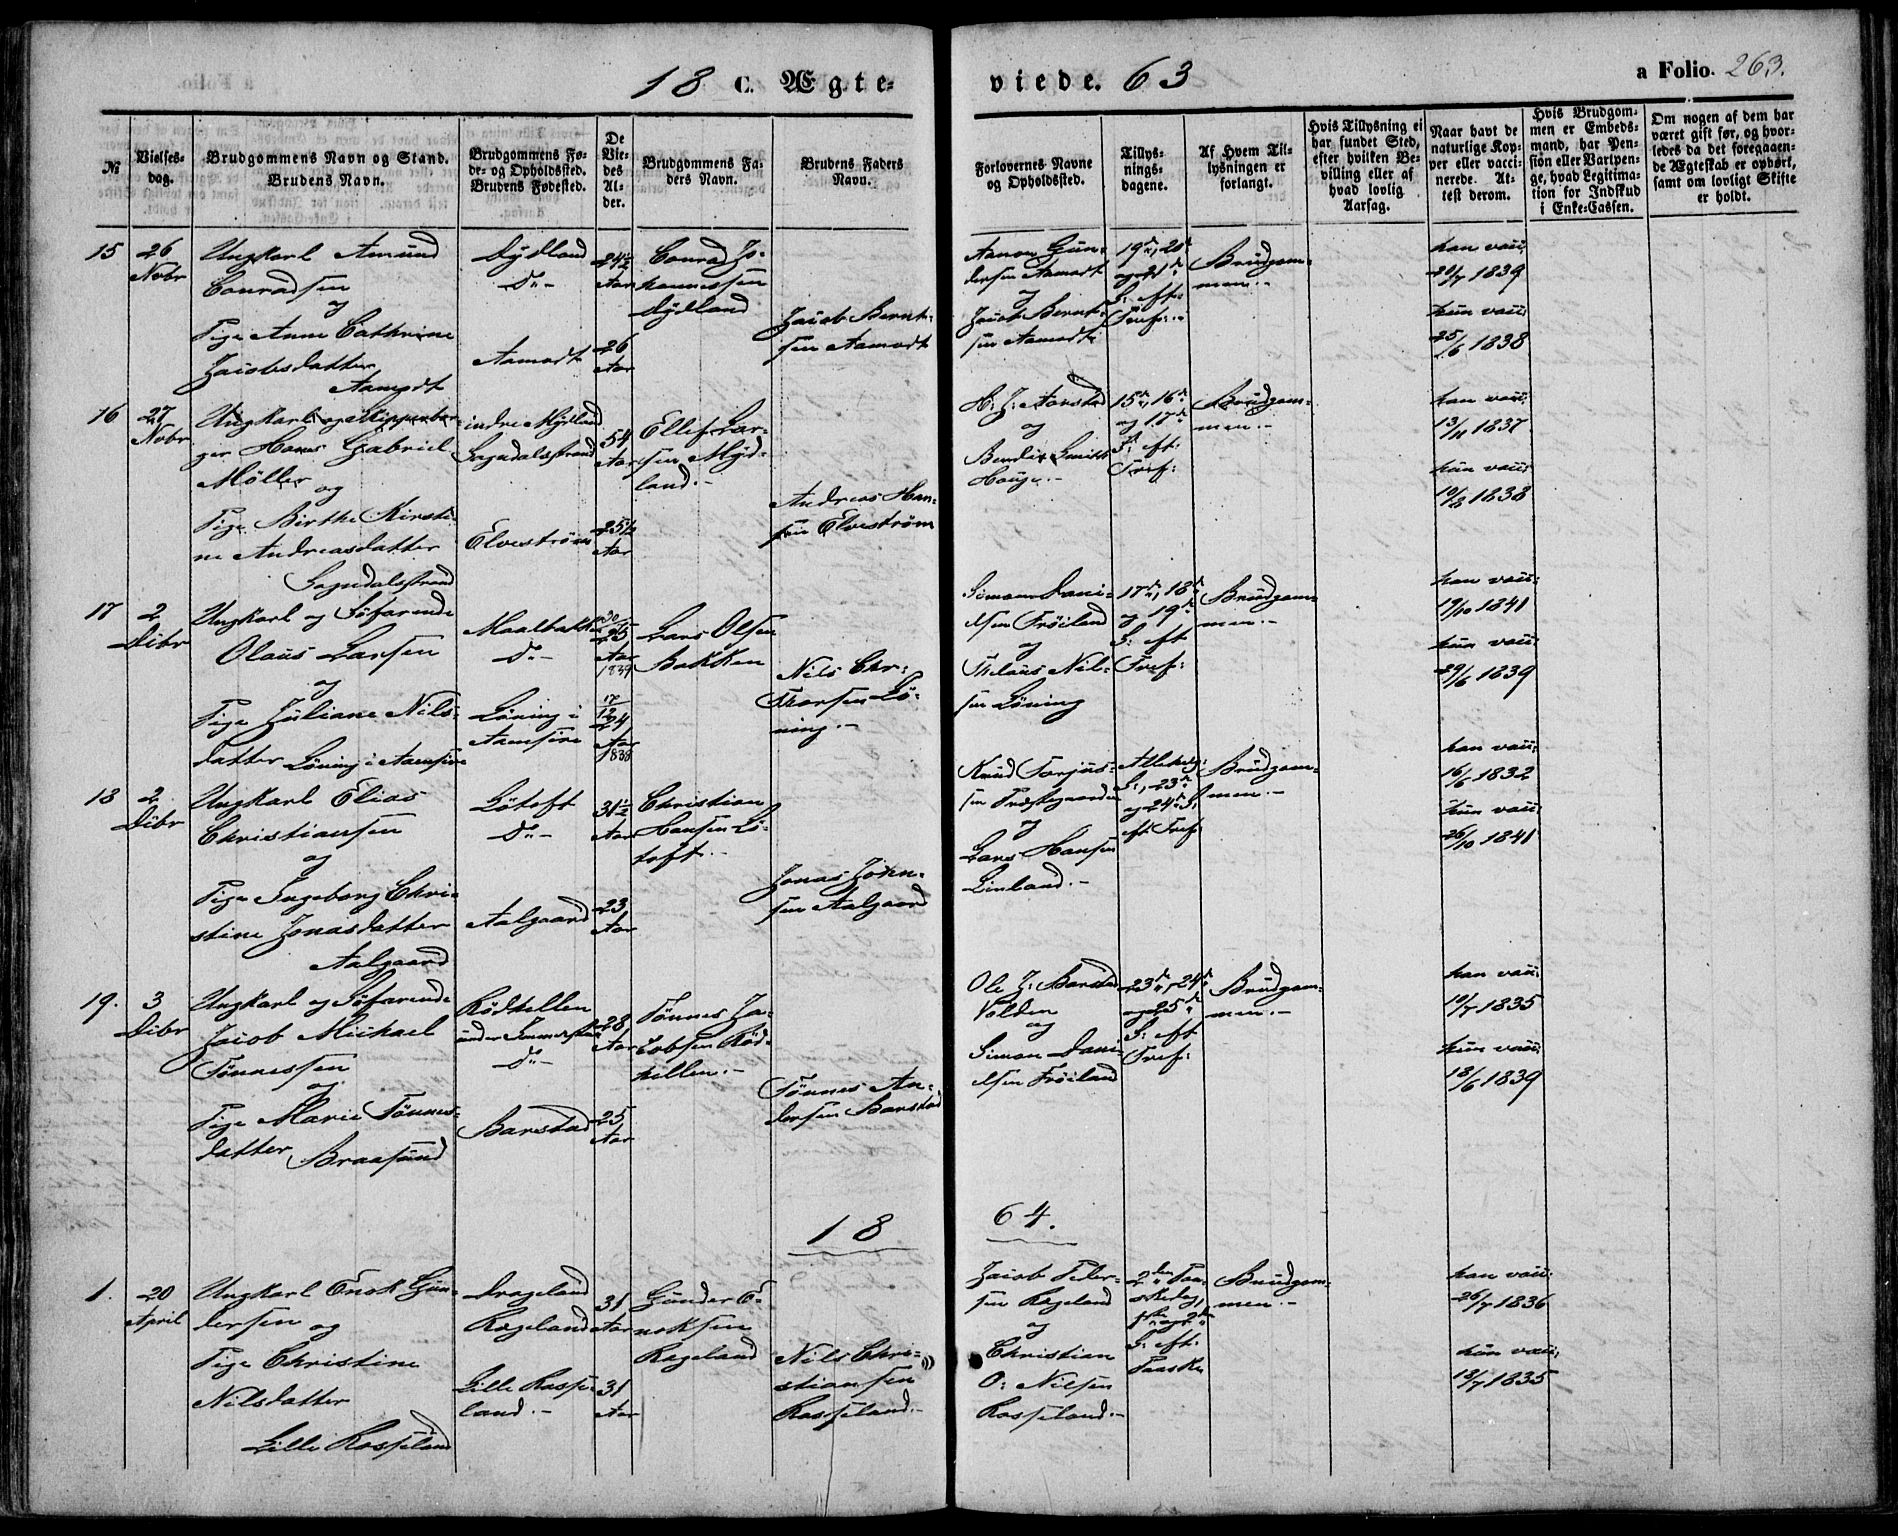 18 C. Ægte-
viede. 63
a Folio. 263.
№
Vielses-
dag.
Brudgommens Navn og Stand.
Brudens Navn.
Brudgommens Fø-
de- og Opholdssted.
Brudens Fødested.
De
Vie-
des
Al-
der.
Brudgommens Fa-
ders Navn.
Brudens Faders
Navn.
Forlovernes Navne
og Opholdssted.
Tillys-
nings-
dagene.
Af Hvem Til-
lysningen er
forlangt.
Hvis Tillysning ei
har fundet Sted,
efter hvilken Be-
villing eller af
hvad lovlig
Aarsag.
Naar havt de
naturlige Kop-
per eller vacci-
nerede. At-
test derom.
Hvis Brudgom-
men er Embeds-
mand, har Pen-
sion eller Vartpen-
ge, hvad Legitima-
tion for Indskud
i Enke-Cassen.
Om nogen af dem har
været gift før, og hvor-
ledes da det foregaaen-
de Ægteskab er ophørt,
samt om lovligt Skifte
er holdt.
15
26
Nobr
Ungkarl Amund
Conradsen
og
Pige Anne Cathrine
Jacobsdatter
Aamodt
Dydland
D° -
Aamodt
24½
Aar
26
Aar
Conrad Jo-
hannessen
Dydland
Jacob Bernt-
sen Aamodt
Aanon Gun-
dersen Aamodt
og
Jacob Bernt-
sen Aamodt
19de, 20de
og 21de
S: eft:
Tref: -
Brudgom-
men. -
han vacc:
20/7 1839
hun vacc:
25/6 1838
16
27
Nobr
Ungkarl og
Hans Gabriel
Möller
og
Pige Birthe Kirsti-
ne Andreasdatter
Sogndalsstrand
indre Mydland
Sogndalsstrand
Elveström
54
Aar
25½
Aar
Ellef Lar-
sen Myd-
land. -
Andreas Han-
sen Elveström
H: J: Aarstad
og
Bendix Smith
Hauge. -
15de, 16de
og 17de
S: eft:
Tref:
Brudgom-
men. -
han vacc:
13/11 1837
hun vacc:
10/8 1838
17
2
Decbr
Ungkarl og Söfarende
Olaus Larsen
og
Pige Juliane Nils-
datter Löning i Aamsire
Maalbakken
D° -
Löning i
Aamsire
25
Aar
1839
17
12
24
Aar
1838
Lars Olsen
Bakken
Nils Chr:
Thorsen Lö-
ning. -
Simon Dani-
elsen Fröiland
og
Thelaus Nil-
sen Löning
17de, 18de
og 19de
S: eft
Tref:
Brudgom-
men. -
han vacc:
19/10 1841
hun vacc:
29/6 1839
18
2
Decbr
Ungkarl Elias
Christiansen
og
Pige Ingeborg Chri-
stine Jonasdatter
Aalgaard
Lötoft
D° -
Aalgaard
31½
Aar
23
Aar
Christian
Hansen Lö-
toft. -
Jonas John-
sen Aalgaard
Knud Torjus-
sen Præstegaarden
og
Lars Hansen
Linland. -
Allehelg:
S:, 23de
og 24de S:
eft: Tref:
Brudgom-
men. -
han vacc:
16/6 1832
hun vacc:
26/10 1841
19.
3
Decbr
Ungkarl og Söfarende
Jacob Michael
Tönnessen
og
Pige Marie Tönnes-
datter Braasund
Rödhellen
under
D° -
Barstad
28
Aar
25
Aar
Tönnes Ja-
cobsen Röd-
hellen. -
Tönnes An-
dersen Barstad
Ole J: Barstad
Volden
og
Simon Dani-
elsen Fröiland
23de, 24de
og 25de
S: eft
Tref:
Brudgom-
men. -
han vacc:
10/7 1835
hun vacc:
18/6 1839
18
64.
1.
20
April
Ungkarl Enok Gun-
dersen og
Pige Christine
Nilsdatter
Lille Rosseland
Drageland
Rageland
Lille Rosse-
land. -
31
Aar
31
Aar
Gunder E-
noksen
Rageland
Nils Chri-
stiansen
Rosseland. -
Jacob Peder-
sen Rageland
og
Christian
O: Nilsen
Rosseland. -
2den Paa-
skedag,
1ste og 2den
S: eft:
Paaske
Brudgom-
men. -
han vacc:
26/7 1836
hun vacc:
18/7 1835